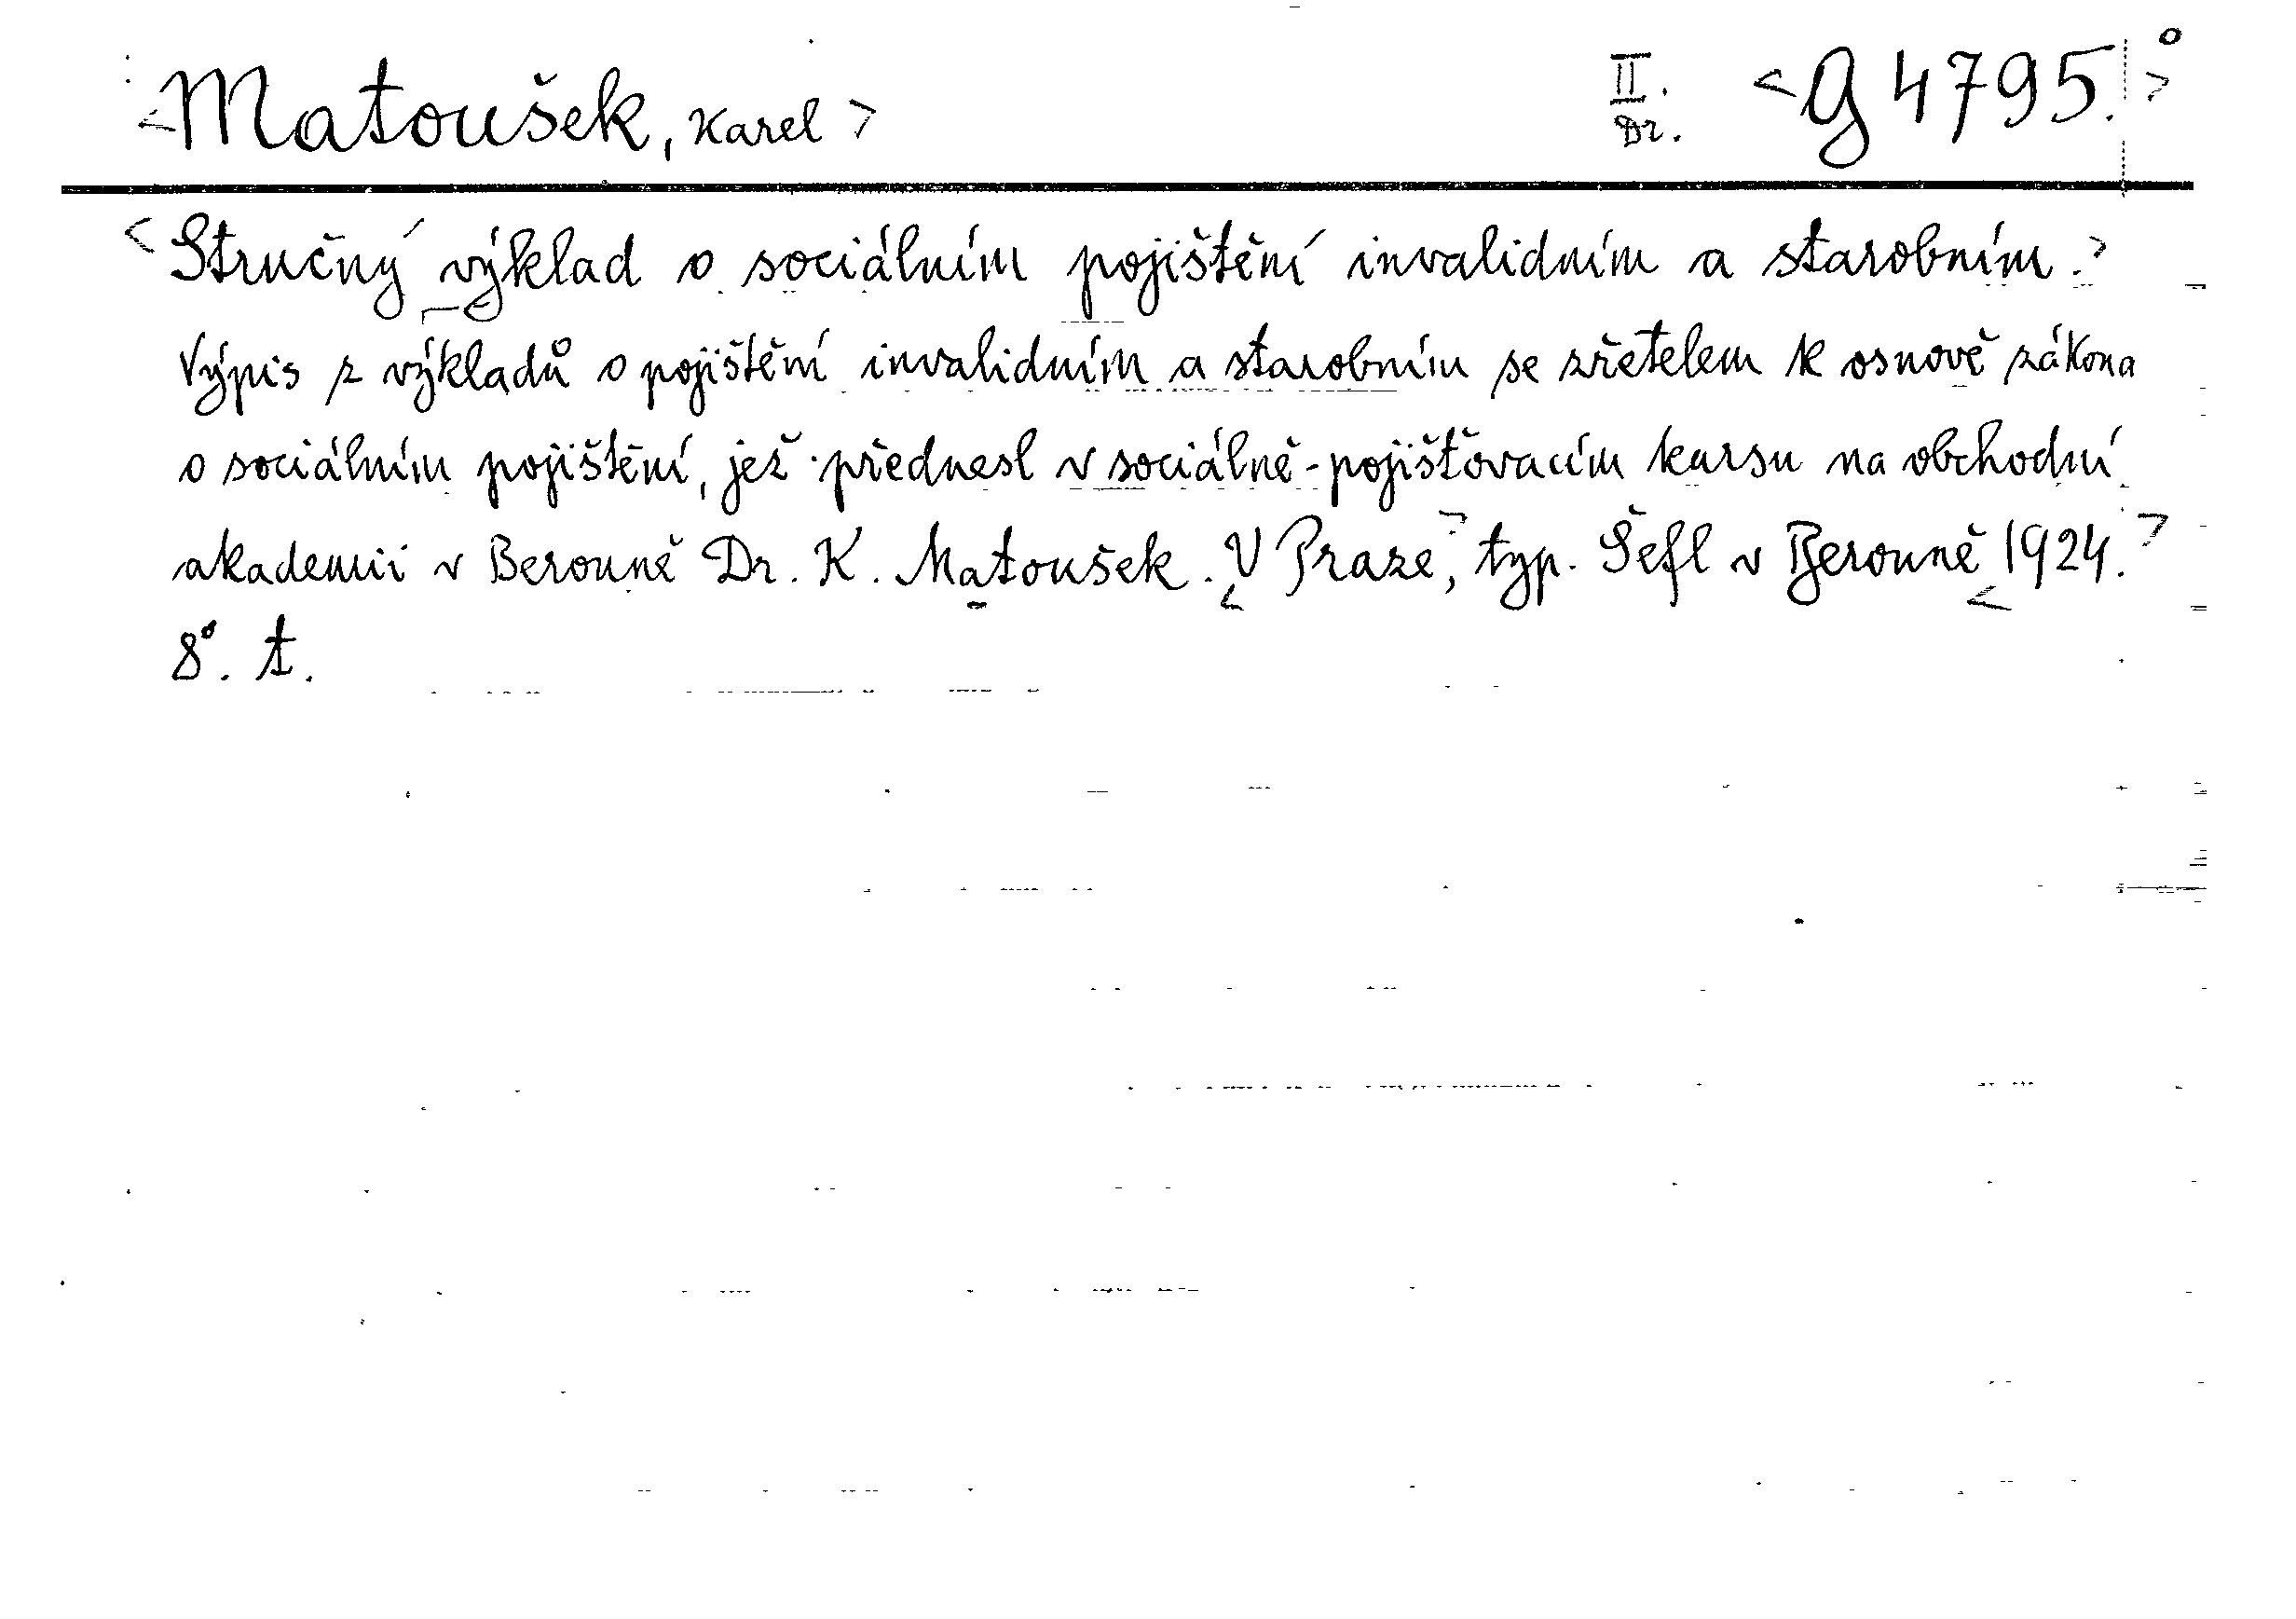 <Matoušek, Karel> II. Dr. <g 4795.>°
<Stručný výklad o sociálním pojištění invalidním a starobním.>
Výpis z výkladů o pojištění invalidním a starobním se zřetelem k osnově zákona
o sociálním pojištění, jež přednesl v sociálně-pojišťovacím kursu na obchodní
akademii v Berouně Dr. K. Matoušek. <V Praze,> typ. Šefl v Berouně <1924.>
8°. t.